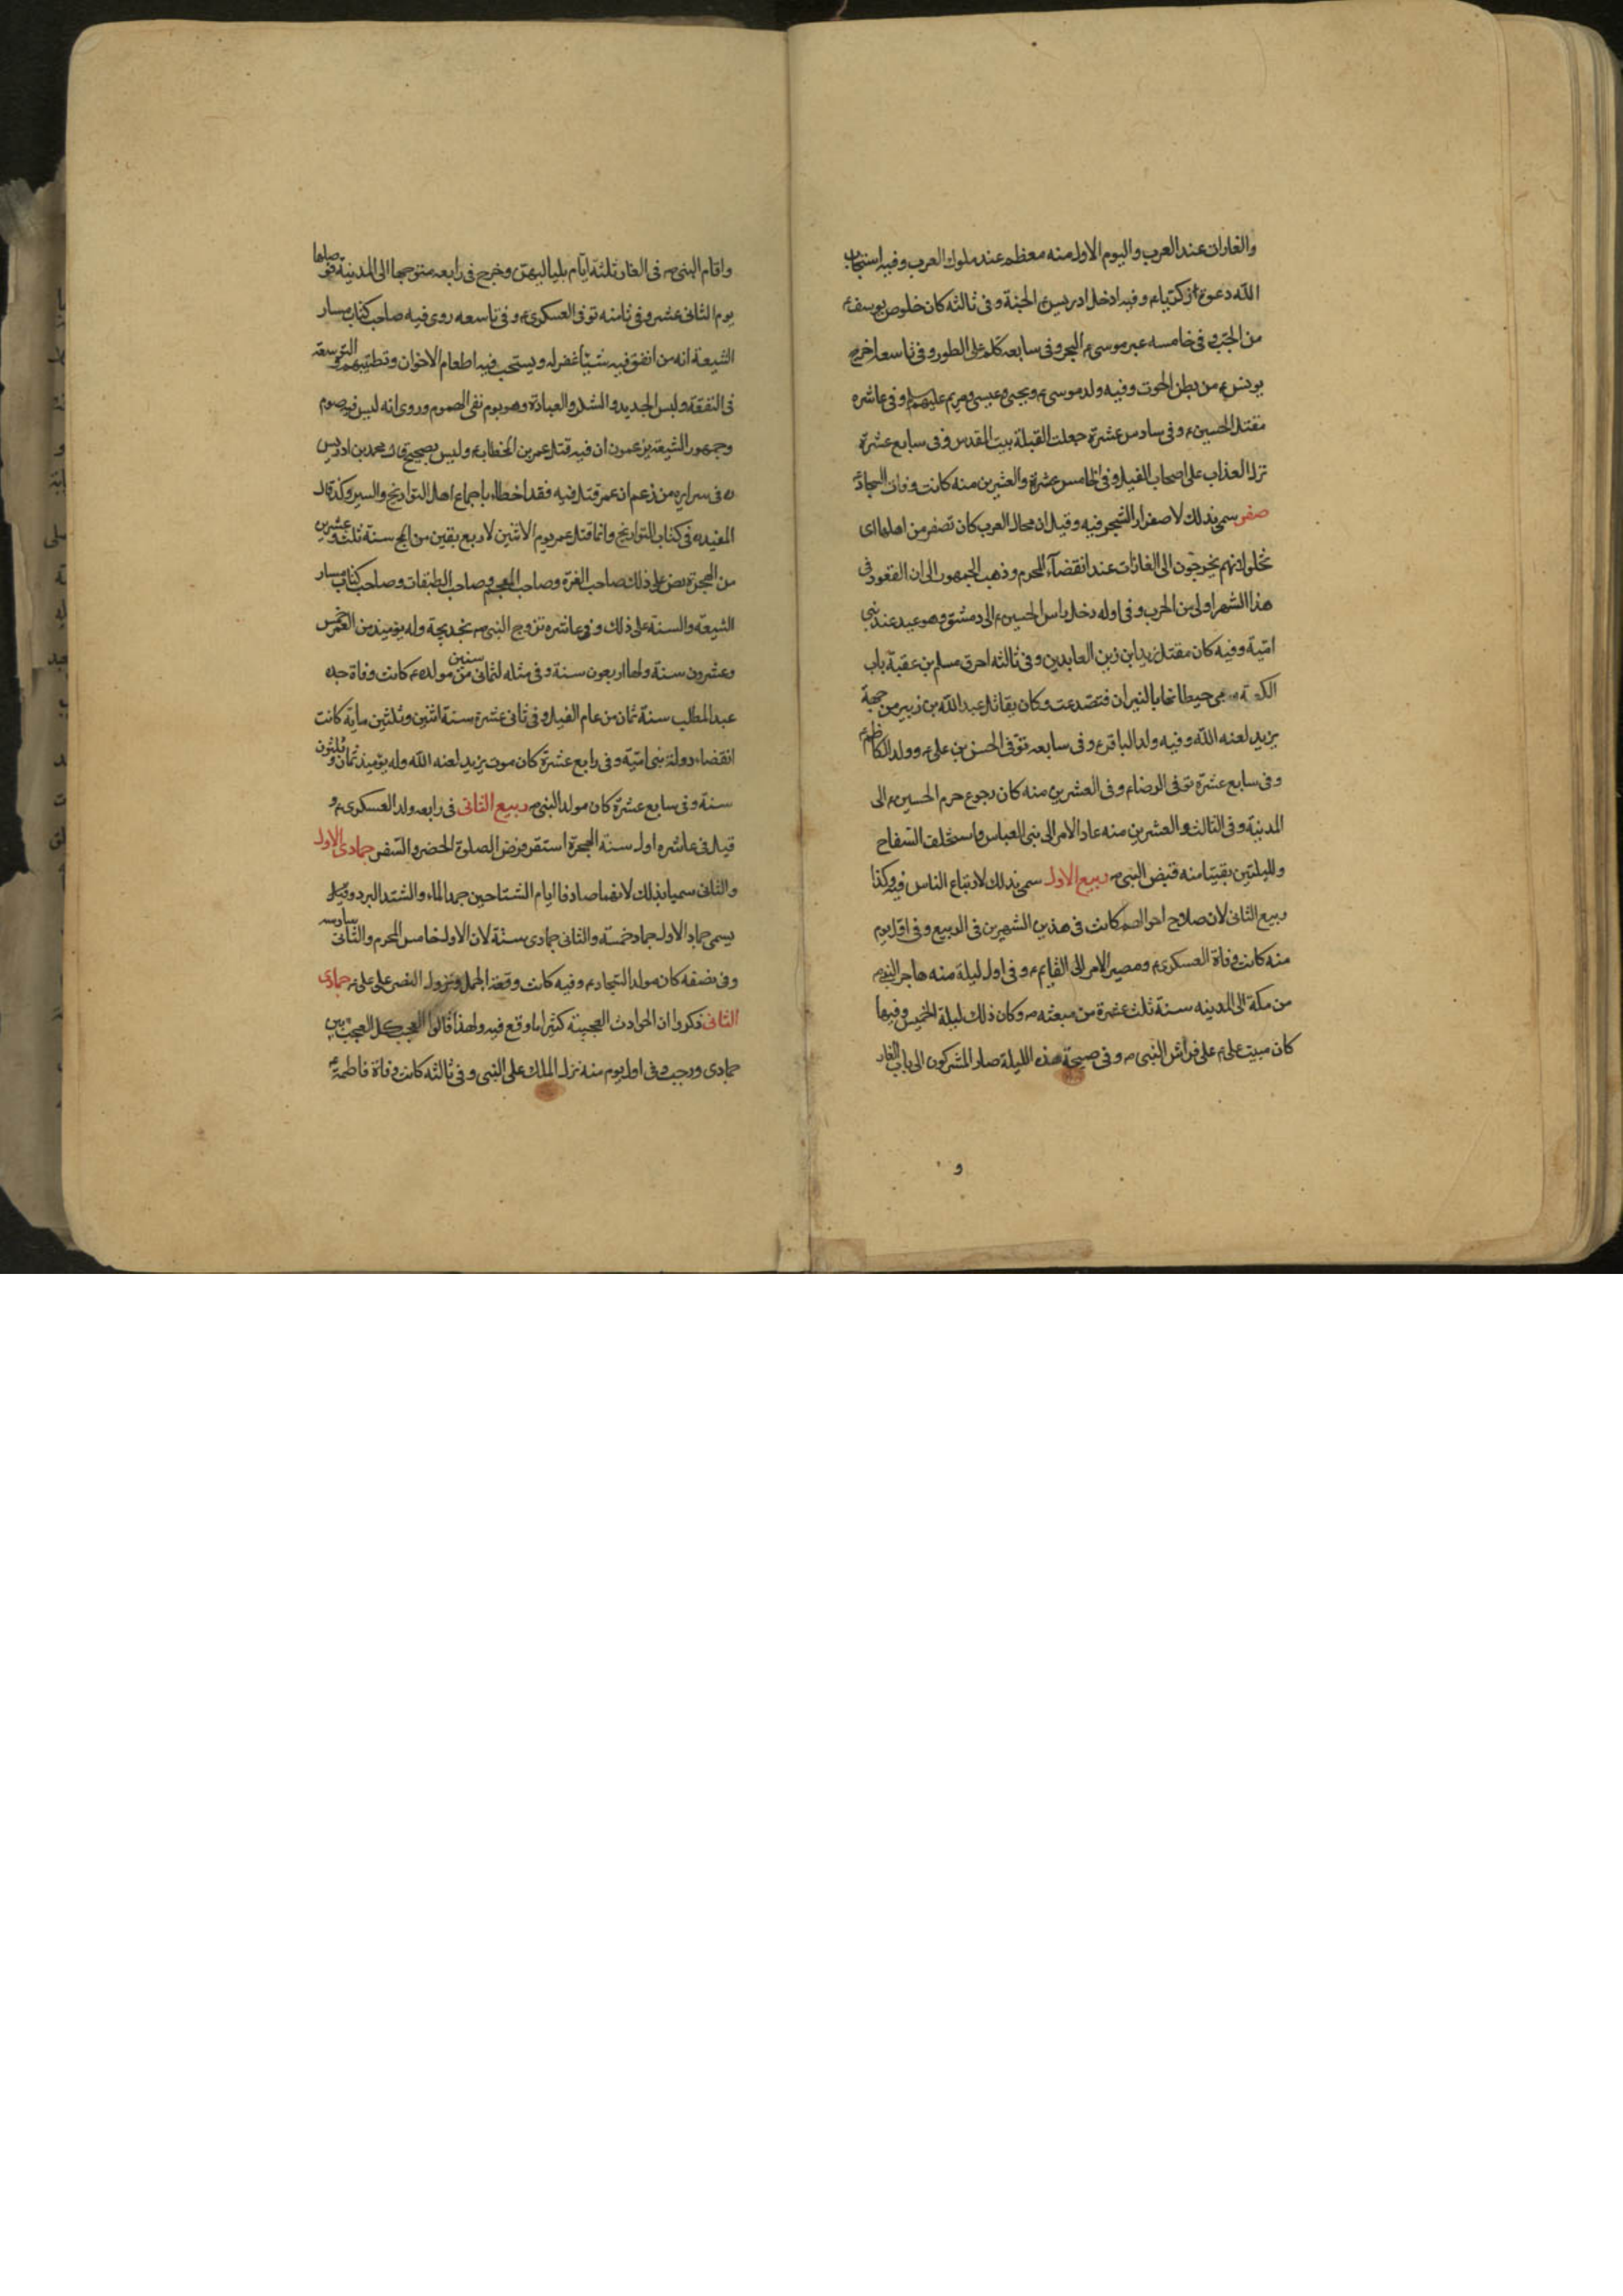 والغاران عند العرب واليوم الاول منه معظم عند ملوك العرب وفيه استجاب
الله دعوة زكريا م وفيه ادخل ادريس ع الجنة وفى ثالثه كان خلوص يوسف ع
من الجب وفى خامسه عبر موسى م البحر وفى سابعه كلم على الطور وفى تاسعه اخرج
يونس ع من بطن الحوت وفيه ولد موسى ع ويحيى وعيسى ومريم عليهم السلم وفى عاشره
مقتل الحسين ع وفى سادس عشرة جعلت القبلة بيت المقدس وفى سابع عشرة
نزل العذاب على اصحاب الفيل وفى الخامس عشرة والعشرين منه كانت وفات السجاد ع
صفر سمى بذلك لاصفرار الشجر فيه وقيل ان محال العرب كان تصفر من اهلها اى
تخلو لانهم يخرجون الى الغارات عند انقضآء المحرم وذهب الجمهور الى ان القعود فى
هذا الشهر اولى من الحرب وفى اوله دخل راس الحسين م الى دمشق وهو عيد عند بنى
امّية وفيه كان مقتل زيد ابن زين العابدين وفى ثالثه احرق مسلم بن عقبة باب
الكعبة ورمى حيطانها بالنيران فتصدعت وكان يقاتل عبد الله بن زبير من جهة
يزيد لعنه الله وفيه ولد الباقر ع وفى سابعه توّفى الحسن بن على م وولد الكاظم ع
وفى سابع عشرة توفى الرضا م وفى العشرين منه كان رجوع حرم الحسين م الى
المدينة وفى الثالث والعشرين منه عاد الامر الى بنى العباس واستخلف السّفاح
ولليلتين بقيتا منه قبض النبى ص ربيع الاول سمى بذلك لارتباع الناس فيه وكذا
ربيع الثانى لان صلاح احوالهم كانت فى هذين الشهرين فى الربيع وفى اوّل يوم
منه كانت وفاة العسكرى م ومصير الامر الى القايم م وفى اول ليلة منه هاجر النبى ص
من مكة الى المدينه سنة ثلث عشرة من مبعثه ص وكان ذلك ليلة الخميس وفيها
كان مبيت على م على فراش النبى ص وفى صبيحة هذه الليلة صار المشركون الى باب الغار
و
واقام النبى ص فى الغار ثلثة ايّام بلياليهنّ وخرج فى رابعه متوجها الى المدينة فوصلها
يوم الثانى عشر وفى ثامنه توفى العسكرى ع وفى تاسعه روى فيه صاحب كتاب مسار
الشيعة انه من انفق فيه شيئا غفر له ويستحب فيه اطعام الاخوان وتطييبهم والتوسعة
فى النفقة ولبس الجديد والشكر والعبادة وهو يوم نفى الهموم وروى انه ليس فيه صوم
وجمهور الشيعة يزعمون ان فيه قتل عمر بن الخطاب ع وليس بصحيح قال محمد بن ادريس
ره فى سرايره من زعم ان عمر قتل فيه فقد اخطاء باجماع اهل التواريخ والسير وكذا قال
المفيد ره فى كتاب التواريخ وانما قتل عمر يوم الاثنين لاربع بقين من الحج سنة ثلث وعشرين
من الهجرة نص على ذلك صاحب الغرّة وصاحب المعجم وصاحب الطبقات وصاحب كتاب مسار
الشيعة والسنة على ذلك وفى عاشره تزوج النبى ص بخديجة وله يومئذ من العمر خمس
وعشرون سنة ولها اربعون سنة وفى مثله لثمانى سنين من مولده ع كانت وفاة جده
عبد المطلب سنة ثمان من عام الفيل وفى ثانى عشرة سنة اثنين وثلثين ماية كانت
انقضاء دولة بنى امّية وفى رابع عشرة كان موت يزيد لعنه الله وله يومئذ ثمان وثلثون
سنة وفى سابع عشرة كان مولد النبى ص ربيع الثانى فى رابعه ولد العسكرى ع و
قيل فى عاشره اول سنة الهجرة استقر فرض الصلوة الحضر والسّفر جمادى الاول
والثانى سميا بذلك لانهما صادفا ايام الشتا حين جمد الماء واشتد البرد وقيل
يسمى جماد الاول جماد خمسة والثانى جمادى ستّة لان الاول خامس المحرم والثانى سادسه
وفى نصفه كان مولد السّجاد ع وفيه كانت وقعة الجمل ونزول النصر على على ع جمادى
الثانى ذكروا ان الحوادث العجيبة كثيرا ما وقع فيه ولهذا قالوا العجب كل العجب بين
جمادى ورجب وفى اول يوم منه نزل الملك على النبى وفى ثالثه كانت وفاة فاطمة ع